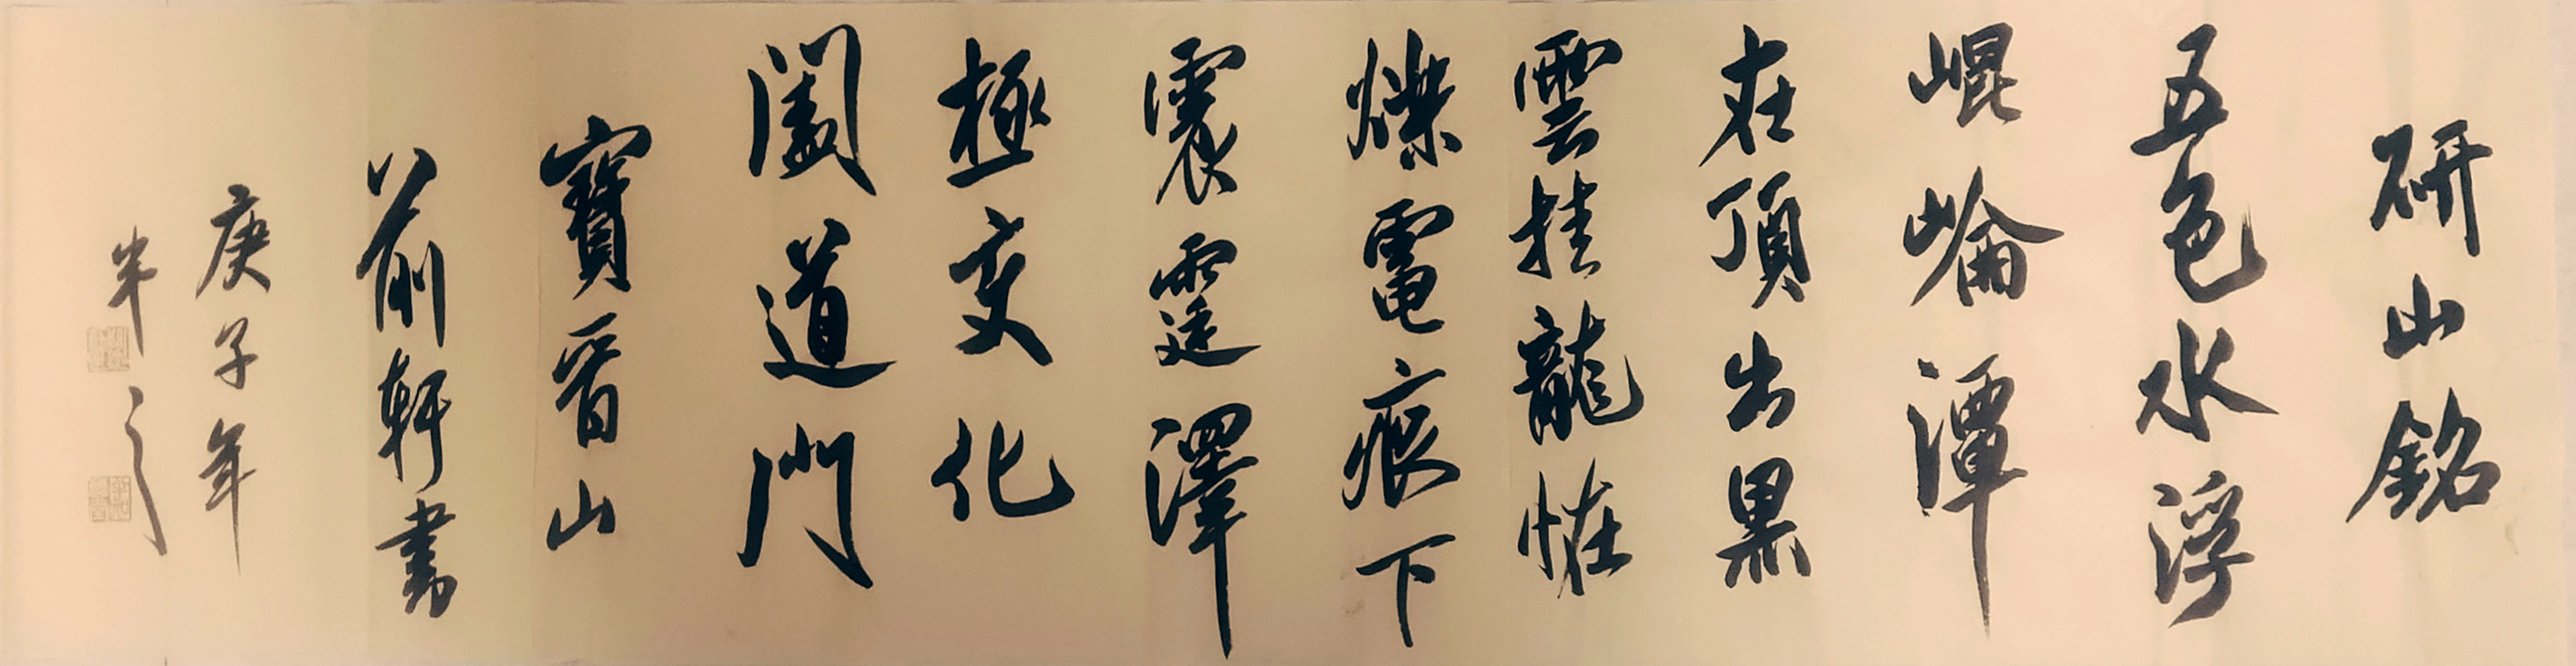 研山銘
五色水浮
崐崘潭
在頂出黑
雲挂龍恠
爍電痕下
震霆澤
極變化
闔道門
寶晉山
前軒書
庚子年